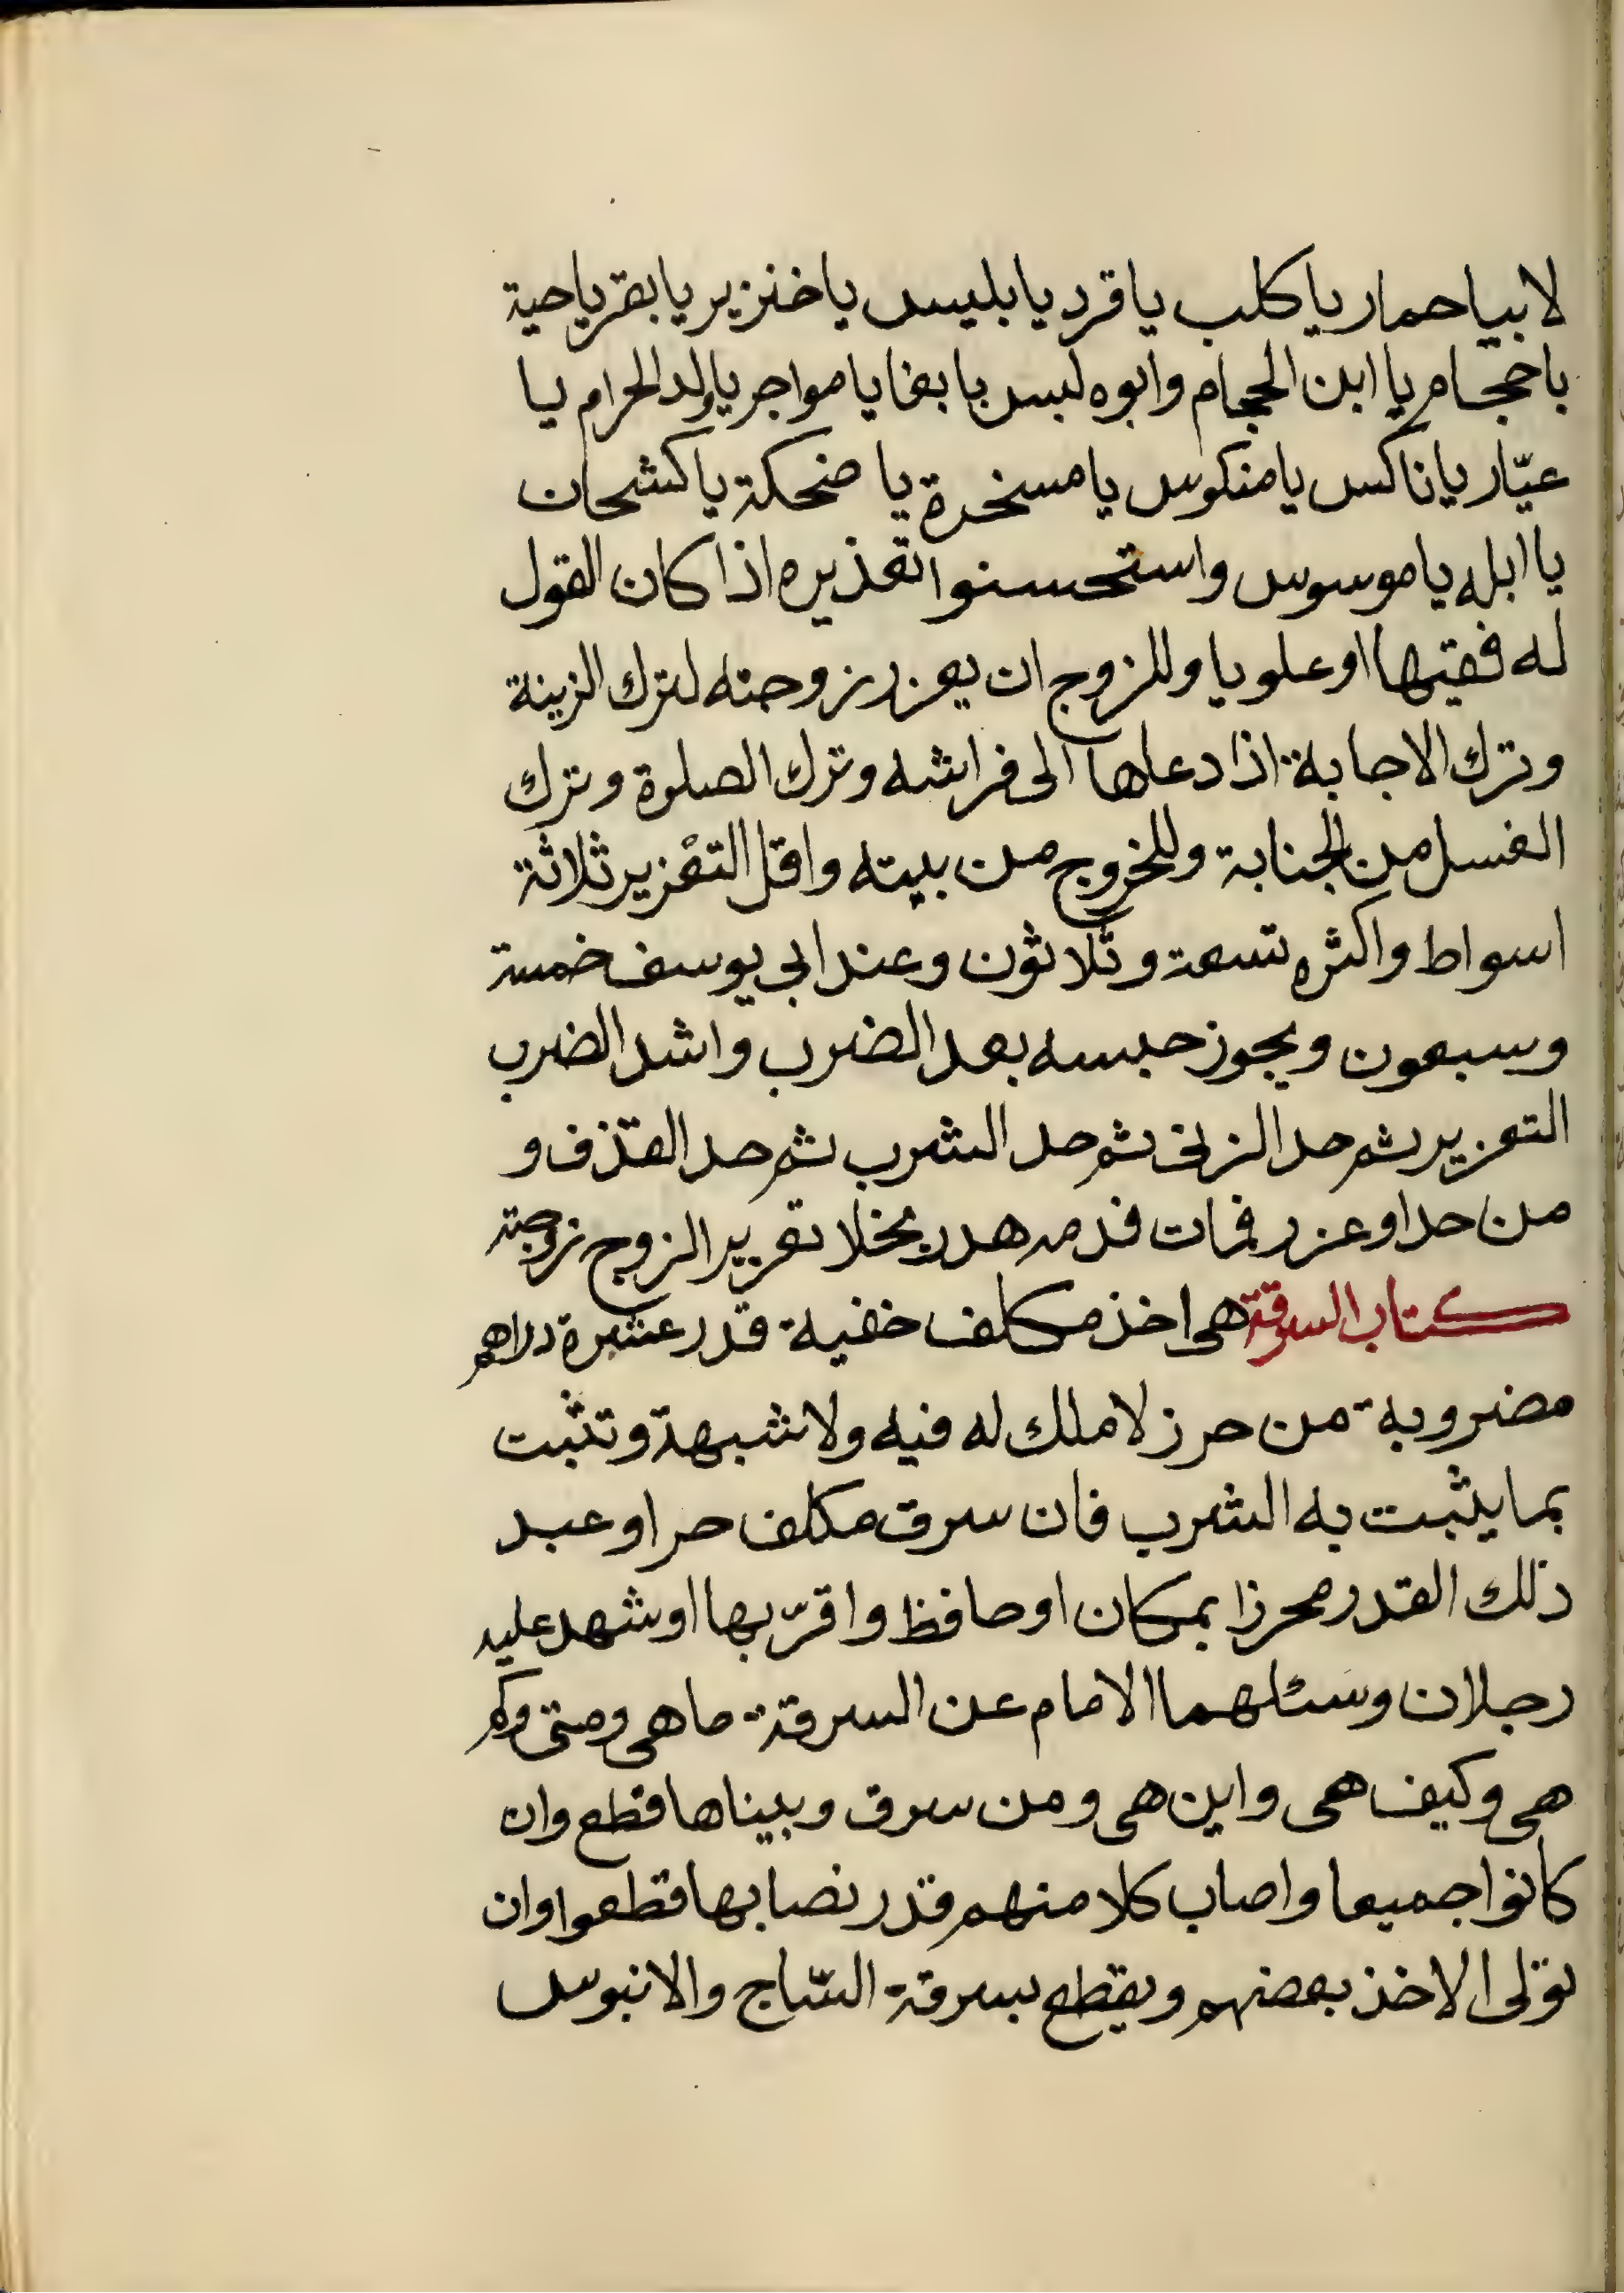 لا بيا حمار يا كلب يا قرد يا بليس يا خنزير يا بقر يا حية
يا حجام يا ابن الحجام وابوه ليس يا بغا يا مواجر يا ولد الحرام يا
عيّار يا ناكس يا منكوس يا مسخرة يا ضحكة يا كشحان
يا ابله يا موسوس واستحسنوا تعذيره اذا كان القول
له فقيها او علويا وللزوج ان يعزر زوجته لترك الزينة
وترك الاجابة اذا دعاها الى فراشه وترك الصلوة وترك
الغسل من الجنابة وللخروج من بيته واقل التعزير ثلاثة
اسواط واكثره تسعة وثلاثون وعند ابي يوسف خمسة
وسبعون ويجوز حبسه بعد الضرب واشد الضرب
التعزير ثم حد الزنى ثم حد الشرب ثم حد القذف و
من حد او عزر فمات فدمه هدر بخلا تعزير الزوج زوجته
كتاب السرقة هى اخذ مكلف خفية قدر عشرة دراهم
مضروبة من حرز لا ملك له فيه ولا شبهة وتثبت
بما يثبت به الشرب فان سرق مكلف حر او عبد
ذلك القدر محرزا بمكان او حافظ واقرّ بها او شهد عليه
رجلان وسئلهما الامام عن السرقة ما هى ومتى وكم
هى وكيف هى واين هى ومن سرق وبيناها قطع وان
كانوا جميعا واصاب كلا منهم قدر نصابها قطعوا وان
تولى الاخذ بعضهم ويقطع بسرقة السّاج والانبوس